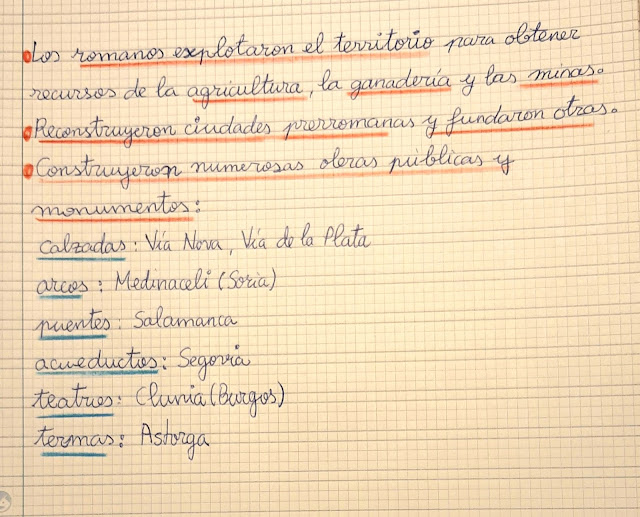 Los romanos explotaron el territorio para obtener
recursos de la agricultura, la ganadería y las minas.
Reconstruyeron ciudades prerromanas y fundaron otras.
Construyeron numerosas obras públicas y
monumentos:
calzadas: Vía Nova, Vía de la Plata
arcos: Medinaceli (Soria)
puentes: Salamanca
acueductos: Segovia
teatros: Clunia (Burgos)
termas: Astorga